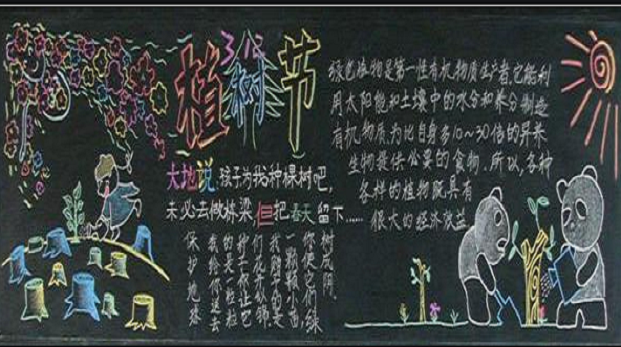 3.12
植树节
大地说:孩子为我种棵树吧,
未必去做栋梁但把春天留下……
保护地球
我给你送去
的是一粒粒
种子你让
们花开似锦
我 的是
一颗颗小苗,
你 它们,绿
树成阴。
绿色植物是第一性有机物质生产者,它能利
用太阳能和土壤中的水分和养分制造
有机物质,为比自身多10~30倍的异养
生物提供必要的食物.所以,各种
各样的植物既具有
很大的经济效益